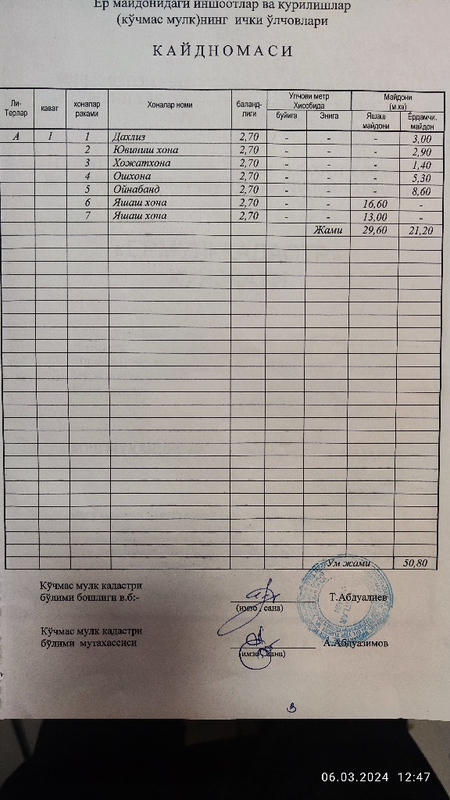 Ер майдонидаги иншоотлар ва қурилишлар
(кўчмас мулк)нинг ички ўлчовлари
КАЙДНОМАСИ
Ли-Терлар кават хоналар раками Хоналар номи баланд-лиги Улчови метр Хисобида буйига Энига Майдони (м.кв) Яшаш майдони Ёрдамчи. майдон
А 1 1 Дахлиз 2,70 - - - 3,00
2 Ювиниш хона 2,70 - - - 2,90
3 Хожатхона 2,70 - - - 1,40
4 Ошхона 2,70 - - - 5,30
5 Ойнабанд 2,70 - - - 8,60
6 Яшаш хона 2,70 - - 16,60 -
7 Яшаш хона 2,70 - - 13,00 -
Жами 29,60 21,20
Ум жами 50,80
Кўчмас мулк кадастри
бўлими бошлиги в.б:- Т.Абдуалиев
(имзо, сана)
Кўчмас мулк кадастри
бўлими мутахассиси А.Абдуазимов
(имзо, сана)
3
06.03.2024 12:47